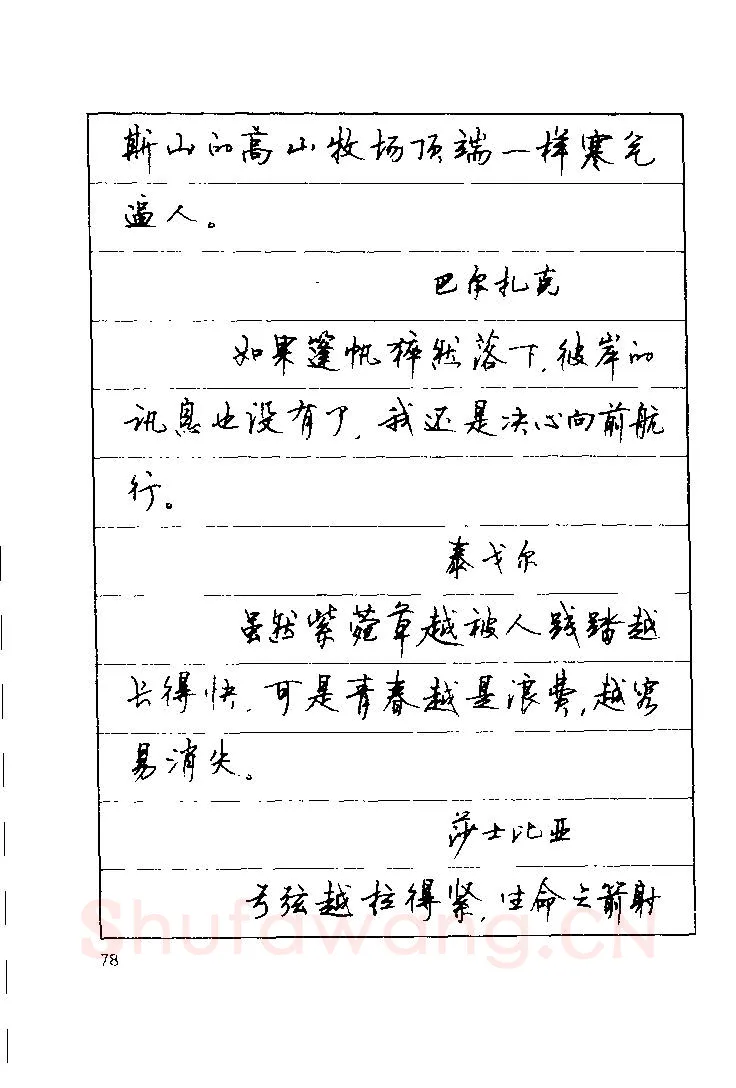 斯山的高山牧场顶端一样寒气
逼人。
巴尔扎克
如果篷帆猝然落下,彼岸的
讯息也没有了,我还是决心向前航
行。
泰戈尔
虽然紫菀草越被人践踏越
长得快,可是青春越是浪费,越容
易消失。
莎士比亚
弓弦越拉得紧,生命之箭射
Shufawang.CN
78